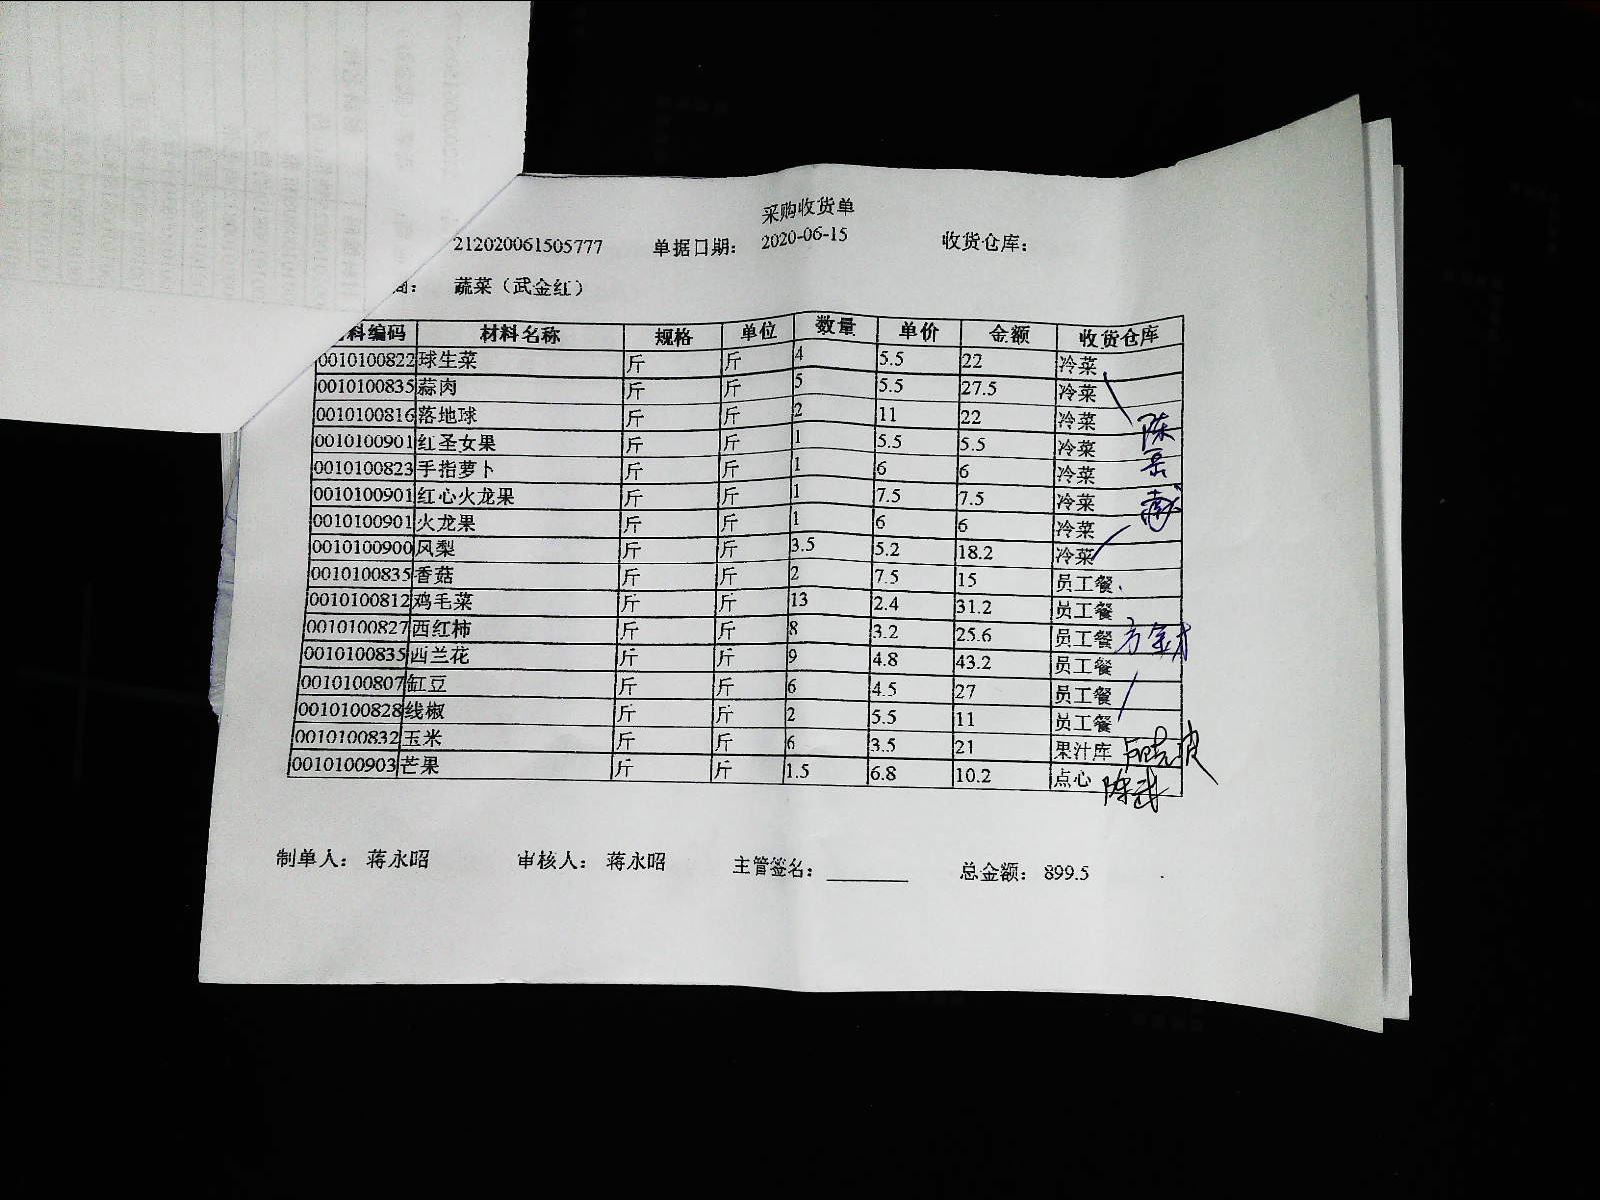 采购收货单
212020061505777 单据日期： 2020-06-15 收货仓库：
商： 蔬菜（武金红）
料编码 材料名称 规格 单位 数量 单价 金额 收货仓库
0010100822 球生菜 斤 斤 4 5.5 22 冷菜
0010100835 蒜肉 斤 斤 5 5.5 27.5 冷菜
0010100816 落地球 斤 斤 2 11 22 冷菜
0010100901 红圣女果 斤 斤 1 5.5 5.5 冷菜
0010100823 手指萝卜 斤 斤 1 6 6 冷菜
0010100901 红心火龙果 斤 斤 1 7.5 7.5 冷菜
0010100901 火龙果 斤 斤 1 6 6 冷菜
0010100900 风梨 斤 斤 3.5 5.2 18.2 冷菜
0010100835 香菇 斤 斤 2 7.5 15 员工餐
0010100812 鸡毛菜 斤 斤 13 2.4 31.2 员工餐
0010100827 西红柿 斤 斤 8 3.2 25.6 员工餐
0010100835 西兰花 斤 斤 9 4.8 43.2 员工餐
0010100807 缸豆 斤 斤 6 4.5 27 员工餐
0010100828 线椒 斤 斤 2 5.5 11 员工餐
0010100832 玉米 斤 斤 6 3.5 21 果汁库
0010100903 芒果 斤 斤 1.5 6.8 10.2 点心 陈武
制单人： 蒋永昭 审核人： 蒋永昭 主管签名： 总金额： 899.5